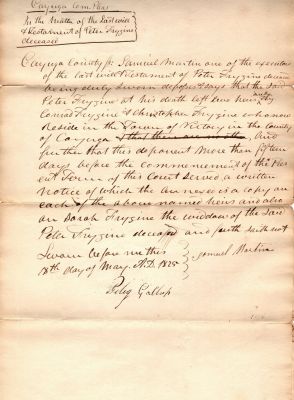 Cayuga Com Pleas
In the Matter of the Last will
& Testament of Peter Frygine
deceased
Cayuga County ss Samuel Martin one of the executors
of the last will & testament of Peter Frygine deceased
being duly sworn deposes & says that the said
Peter Frygine at his death left two heirs
Conrad Frygine & Christopher Frygine who now
reside in the Town of Victory in the County
of Cayuga And
further that this deponent more than fifteen
days before the commencement of the Pres
ent Term of this Court served a written
notice of which the annexed is a copy on
each of the above named heirs and also
on Sarah Frygine the widdow of the said
Peter Frygine deceasd and further saith not
Sworn before me this
18th day of May A.D. 1825
Samuel Martin
Peleg Gallup